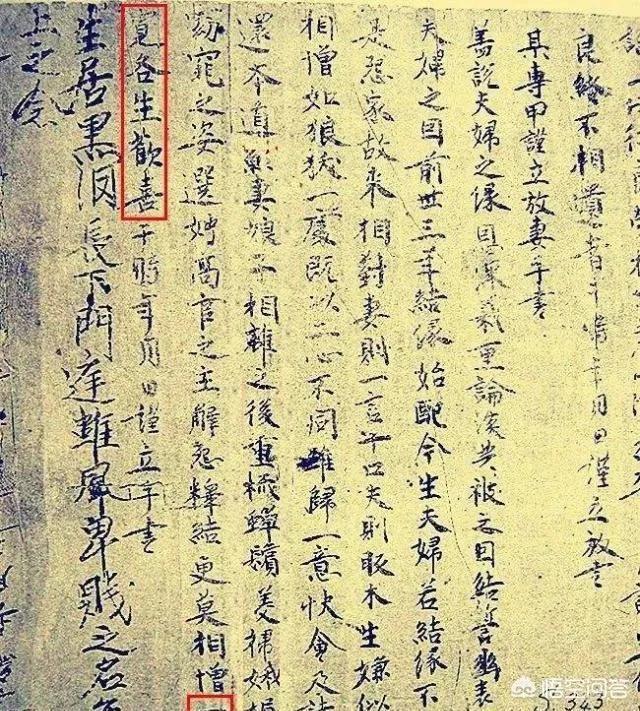 良終不相遺者于時年月日謹立放書
某專甲謹立放妻手書
蓋說夫婦之緣恩深義重論談共被之因結誓幽遠
夫婦之因前世三年結緣始配今生夫婦若結緣不
是怨家故來相對妻則一言十口夫則反木生嫌似
相憎如狼犺一處既以二心不同難歸一意快會及諸
還本道願妻娘子相離之後重梳蟬鬢美掃娥眉
窈窕之姿選娉高官之主解怨釋結更莫相憎
寬各生歡喜于時年月日謹立手書
生居黑長下門庭雖卑賤之名
上之
悟空问答
343